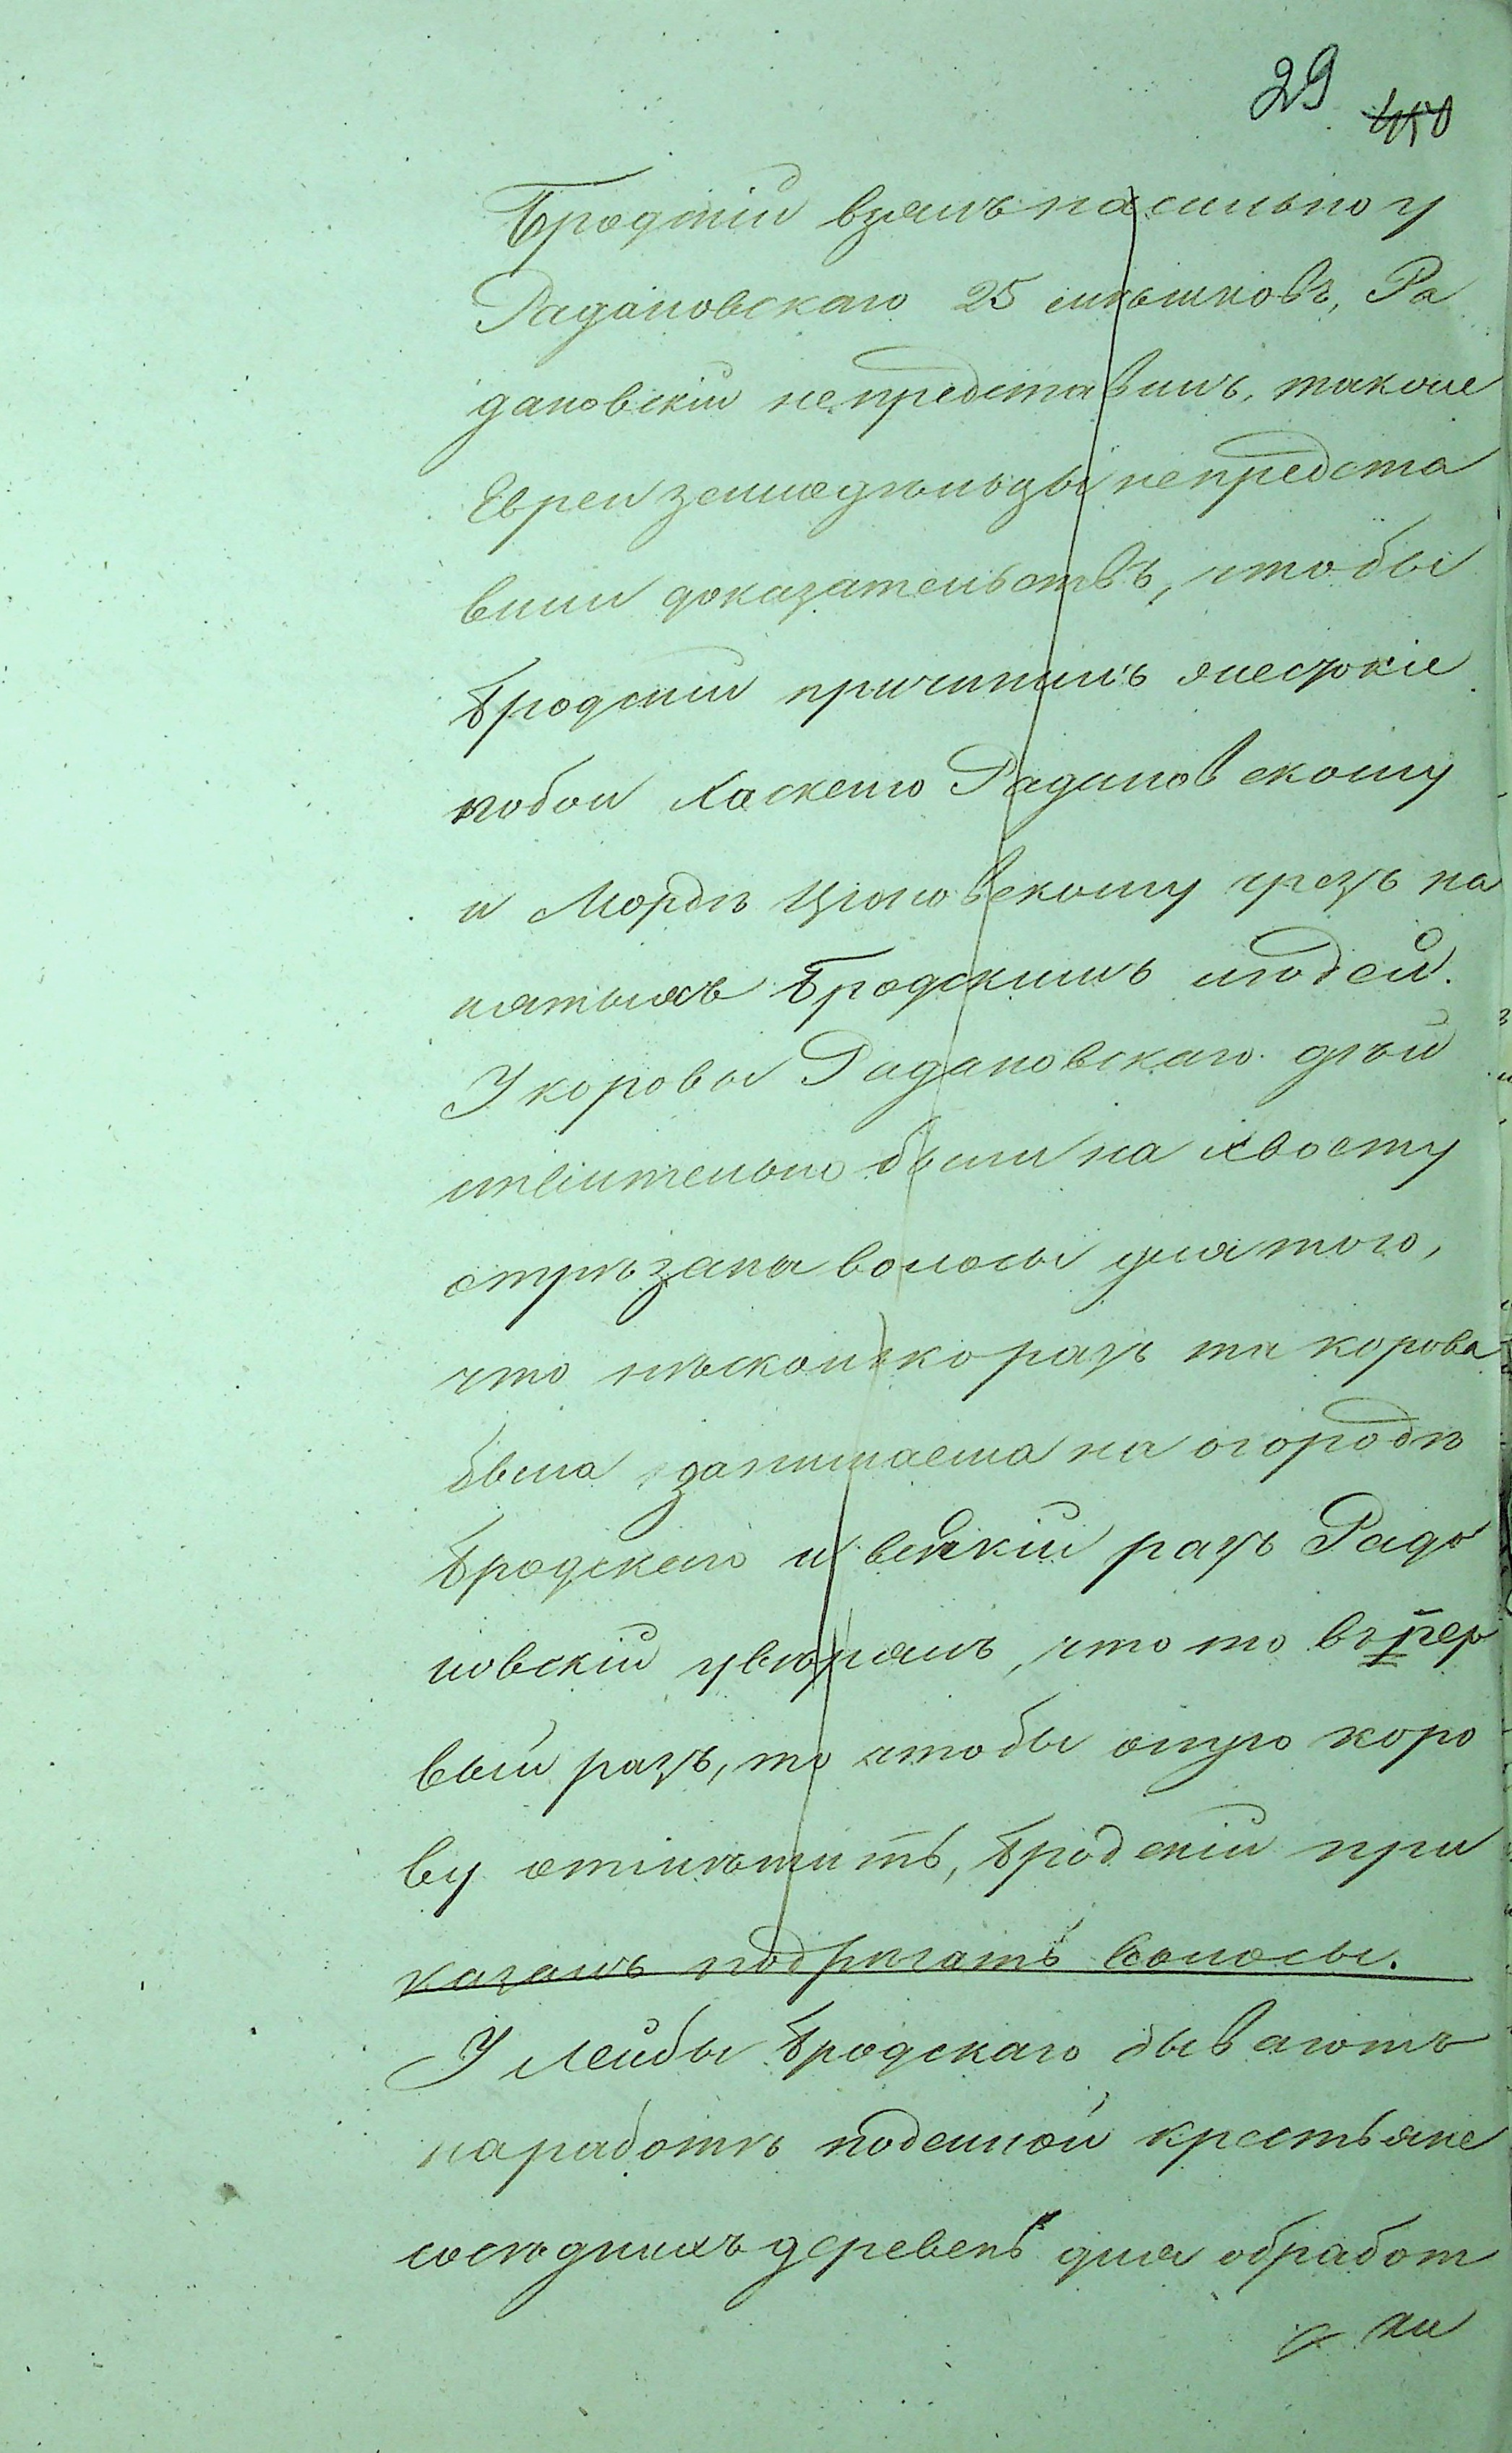 29 450
Бродскій взялъ насильно у
Радановскаго 25 мѣшковъ, Ра
дановскій не представилъ, также
Евреи земледѣльцы не предста
вили доказательствъ, чтобы
Бродскій причинилъ жестокіе
побои Хаскелю Радановскому
и Мордѣ чрезъ на
нятыхъ Бродскимъ людей.
У коровы Радановскаго дѣй
ствительно были на хвосту
стрѣзаны волосы для того,
что нѣсколько разъ та корова
была занимаема на огородѣ
Бродскаго и всякій разъ Радо
новскій увѣрялъ, что то въ пер
вый разъ, то чтобы оную коро
ву отмѣтить, Бродскій при
казалъ подрѣзать волосы.
У Лейбы Бродскаго бываютъ
на работѣ поденной крестьяне
сосѣднихъ деревень для обработ
ки